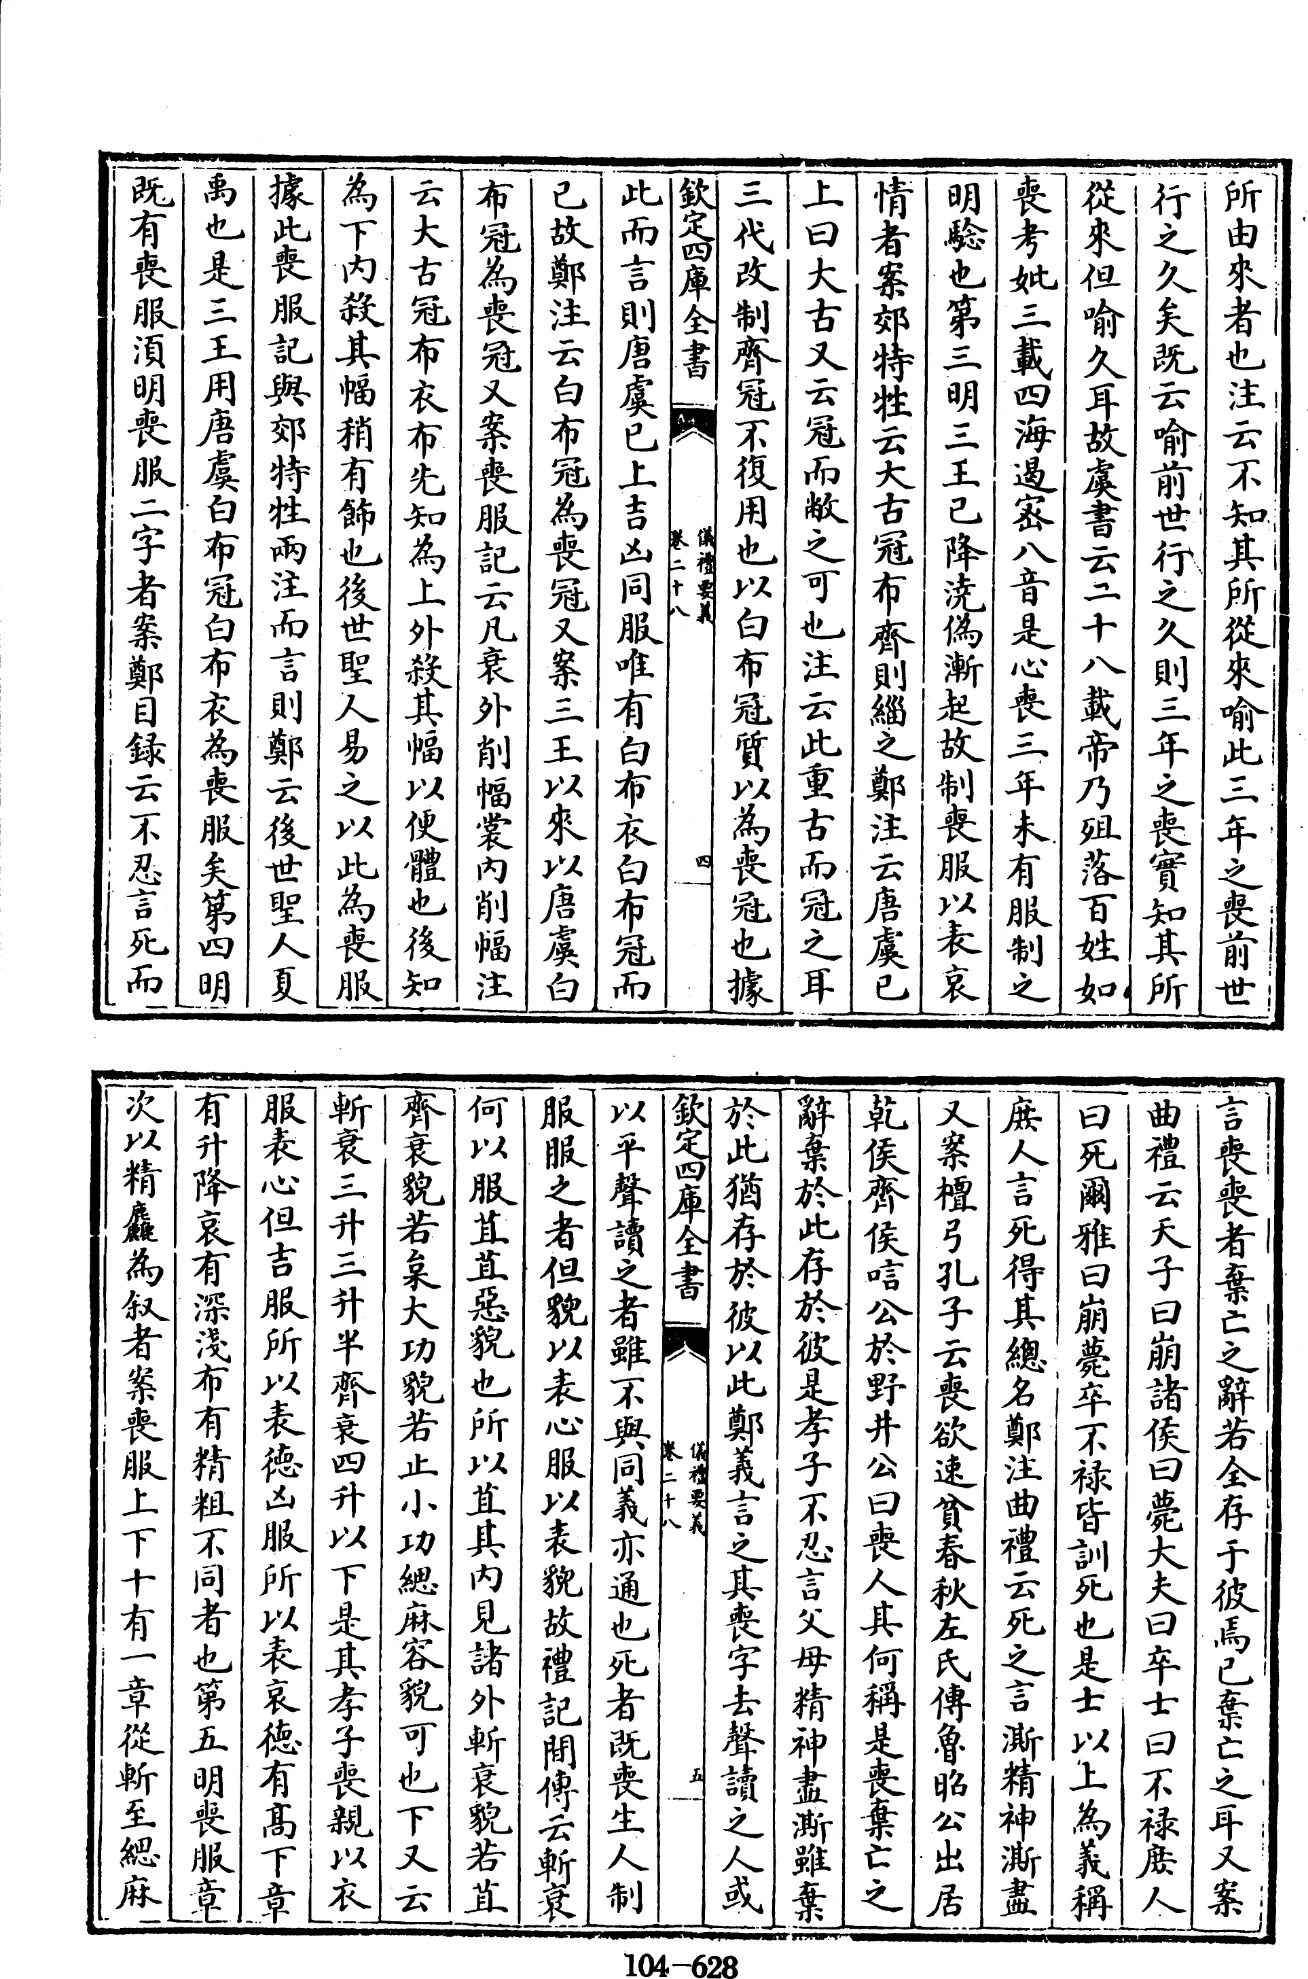 所由來者也注云不知其所從來喻此三年之喪前世
行之久矣既云喻前世行之久則三年之喪實知其所
從來但喻久耳故虞書云二十八載帝乃殂落百姓如
喪考妣三載四海遏密八音是心喪三年未有服制之
明驗也第三明三王已降澆僞漸起故制喪服以表哀
情者案郊特牲云大古冠布齊則緇之鄭注云唐虞已
上曰大古又云冠而敝之可也注云此重古而冠之耳
三代改制齊冠不復用也以白布冠質以為喪冠也據
欽定四庫全書
儀禮要義
卷二十八
四
此而言則唐虞已上吉凶同服唯有白布衣白布冠而
已故鄭注云白布冠為喪冠又案三王以來以唐虞白
布冠為喪冠又案喪服記云凡衰外削幅裳內削幅注
云大古冠布衣布先知為上外殺其幅以便體也後知
為下內殺其幅稍有飾也後世聖人易之以此為喪服
據此喪服記與郊特牲兩注而言則鄭云後世聖人夏
禹也是三王用唐虞白布冠白布衣為喪服矣第四明
既有喪服湏明喪服二字者案鄭目録云不忍言死而
言喪喪者棄亡之辭若全存于彼焉已棄亡之耳又案
曲禮云天子曰崩諸侯曰薨大夫曰卒士曰不禄庶人
曰死爾雅曰崩薨卒不禄皆訓死也是士以上為義稱
庶人言死得其總名鄭注曲禮云死之言澌精神澌盡
又案檀弓孔子云喪欲速貧春秋左氏傳魯昭公出居
乾侯齊侯唁公於野井公曰喪人其何稱是喪棄亡之
辭棄於此存於彼是孝子不忍言父母精神盡澌雖棄
於此猶存於彼以此鄭義言之其喪字去聲讀之人或
欽定四庫全書
儀禮要義
卷二十八
五
以平聲讀之者雖不與同義亦通也死者既喪生人制
服服之者但貌以表心服以表貌故禮記閒傳云斬衰
何以服苴苴惡貌也所以苴其內見諸外斬衰貌若苴
齊衰貌若枲大功貌若止小功緦麻容貌可也下又云
斬衰三升三升半齊衰四升以下是其孝子喪親以衣
服表心但吉服所以表德凶服所以表哀德有高下章
有升降哀有深淺布有精粗不同者也第五明喪服章
次以精麤為叙者案喪服上下十有一章從斬至緦麻
104-628